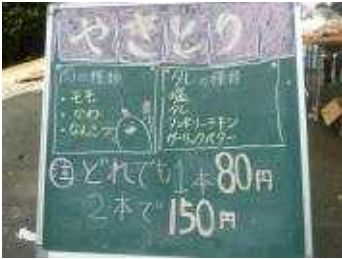 やきとり
肉の種類
・モモ
・かわ
・なんこつ
タレの種類
塩
タレ
ヤンニョムチキン
ガーリックバター
注 どれでも1本80円
2本で150円